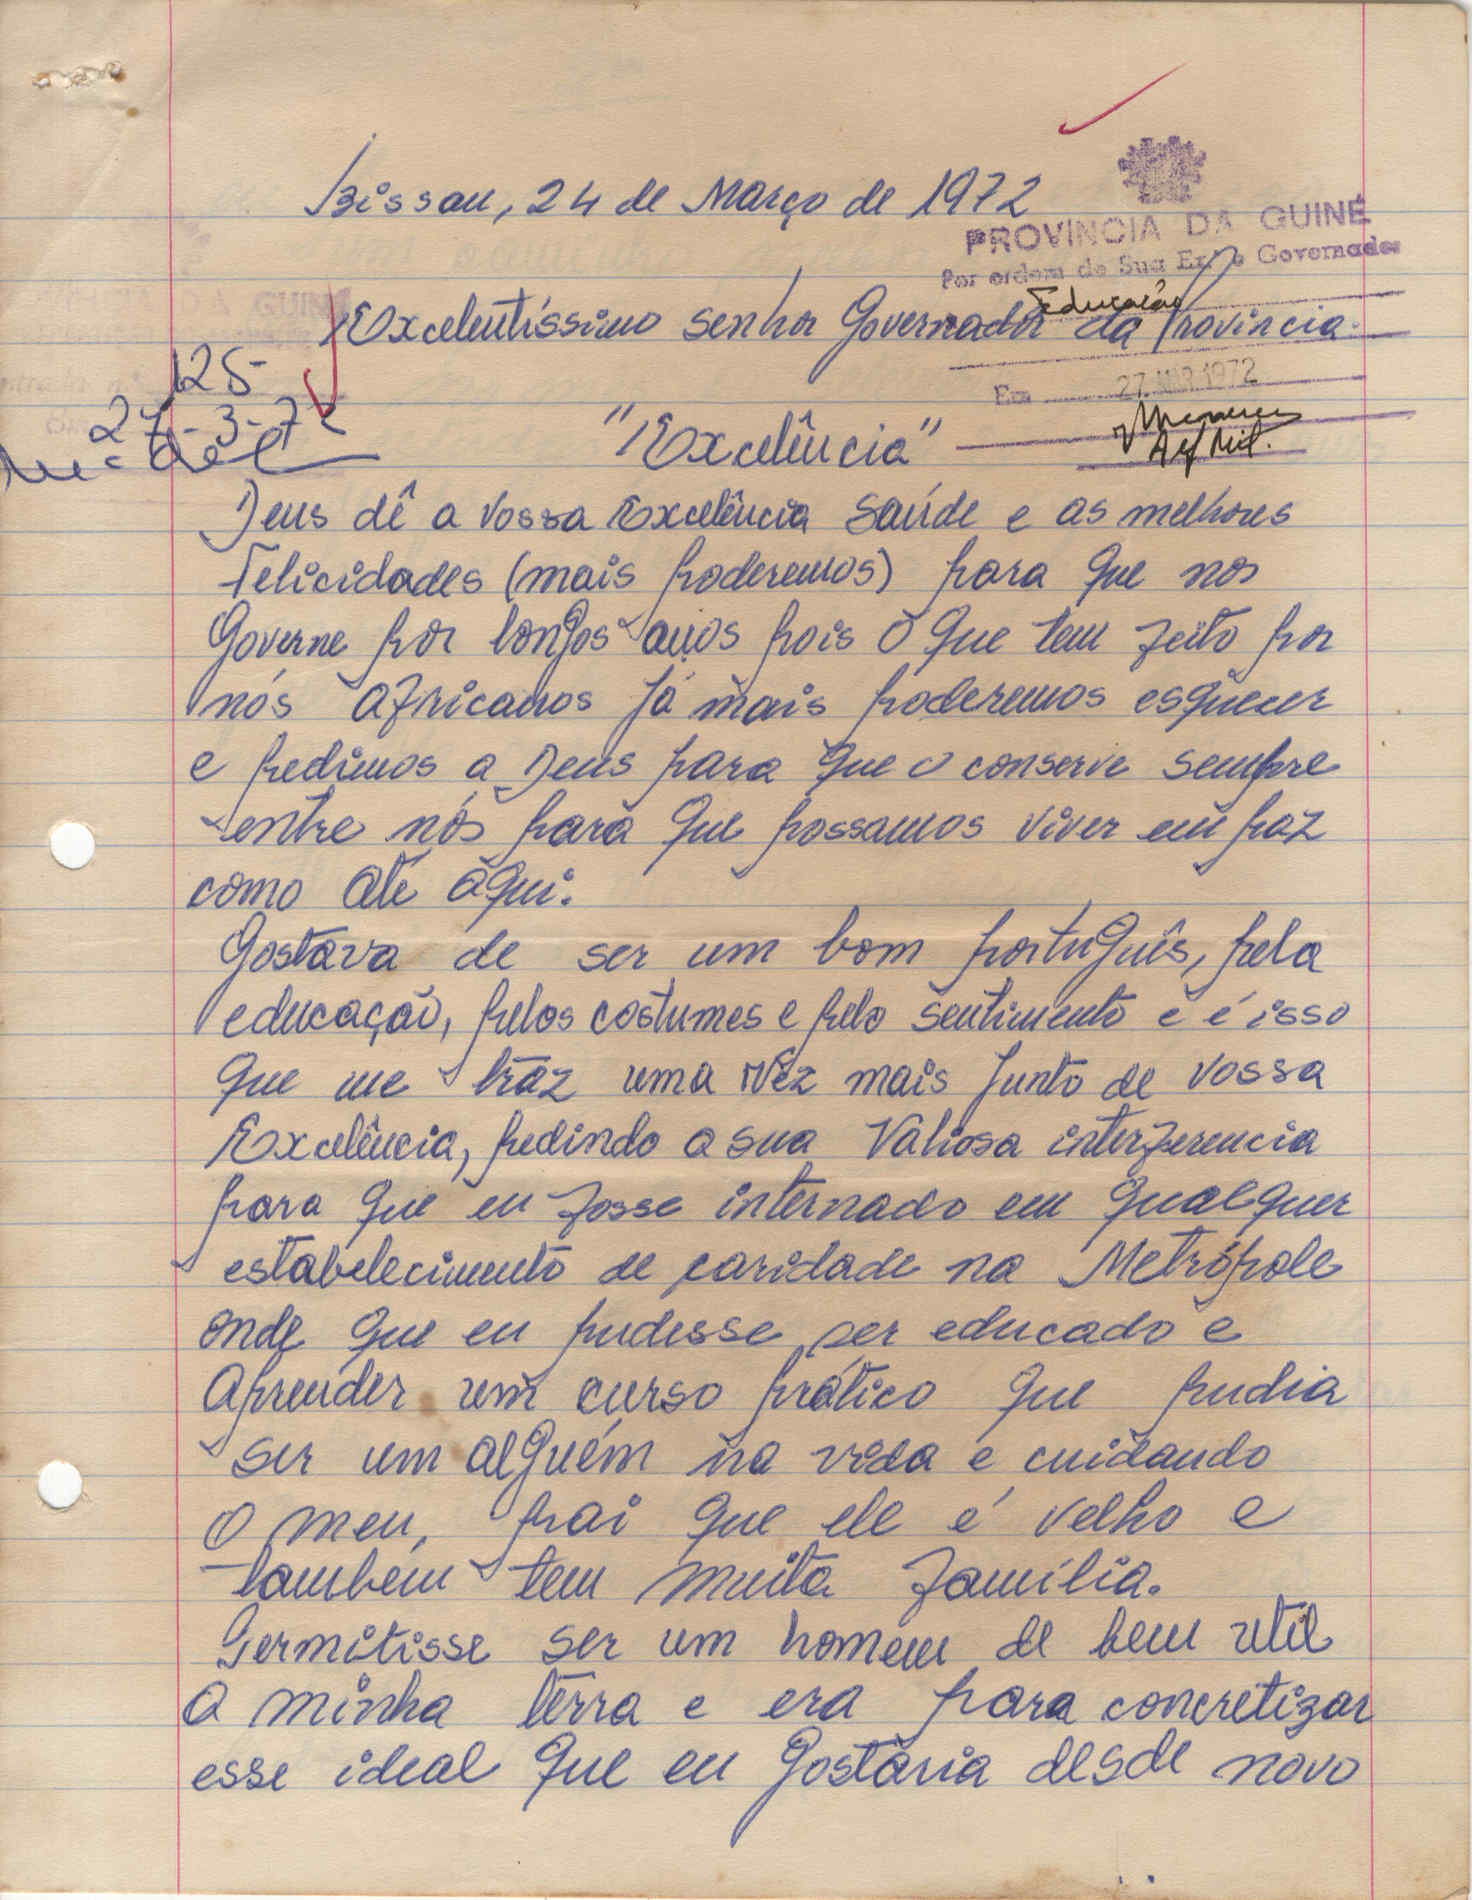 Bissau, 24 de Março de 1972
PROVINCIA DA GUINÉ
Por ordem de Sua Exª o Governador
Educação
Excelentíssimo senhor Governador da Provincia.
125
27-3-72
Em 27. MAR 1972
"Excelência"
Alf Mil.
Deus dê a Vossa Excelência Saúde e as melhores
Felicidades (mais poderemos) para que nos
Governe por longos anos pois o que tem feito por
nós africanos Já mais poderemos esquecer
e pedimos a Deus para que o conserve sempre
entre nós para que possamos viver em paz
como até aqui.
Gostava de ser um bom português, pela
educação, pelos costumes e pelo sentimento e é isso
que me traz uma Vez mais Junto de Vossa
Excelência, pedindo a sua Valiosa interferencia
para que eu fosse internado em qualquer
estabelecimento de caridade na Metrópole
onde que eu pudesse ser educado e
Aprender um curso prático que pudia
ser um alguém na vida e cuidando
o meu, pai que ele é velho e
também tem muita família.
Permitisse ser um homem de bem util
a minha terra e era para concretizar
esse ideal que eu gostaria desde novo